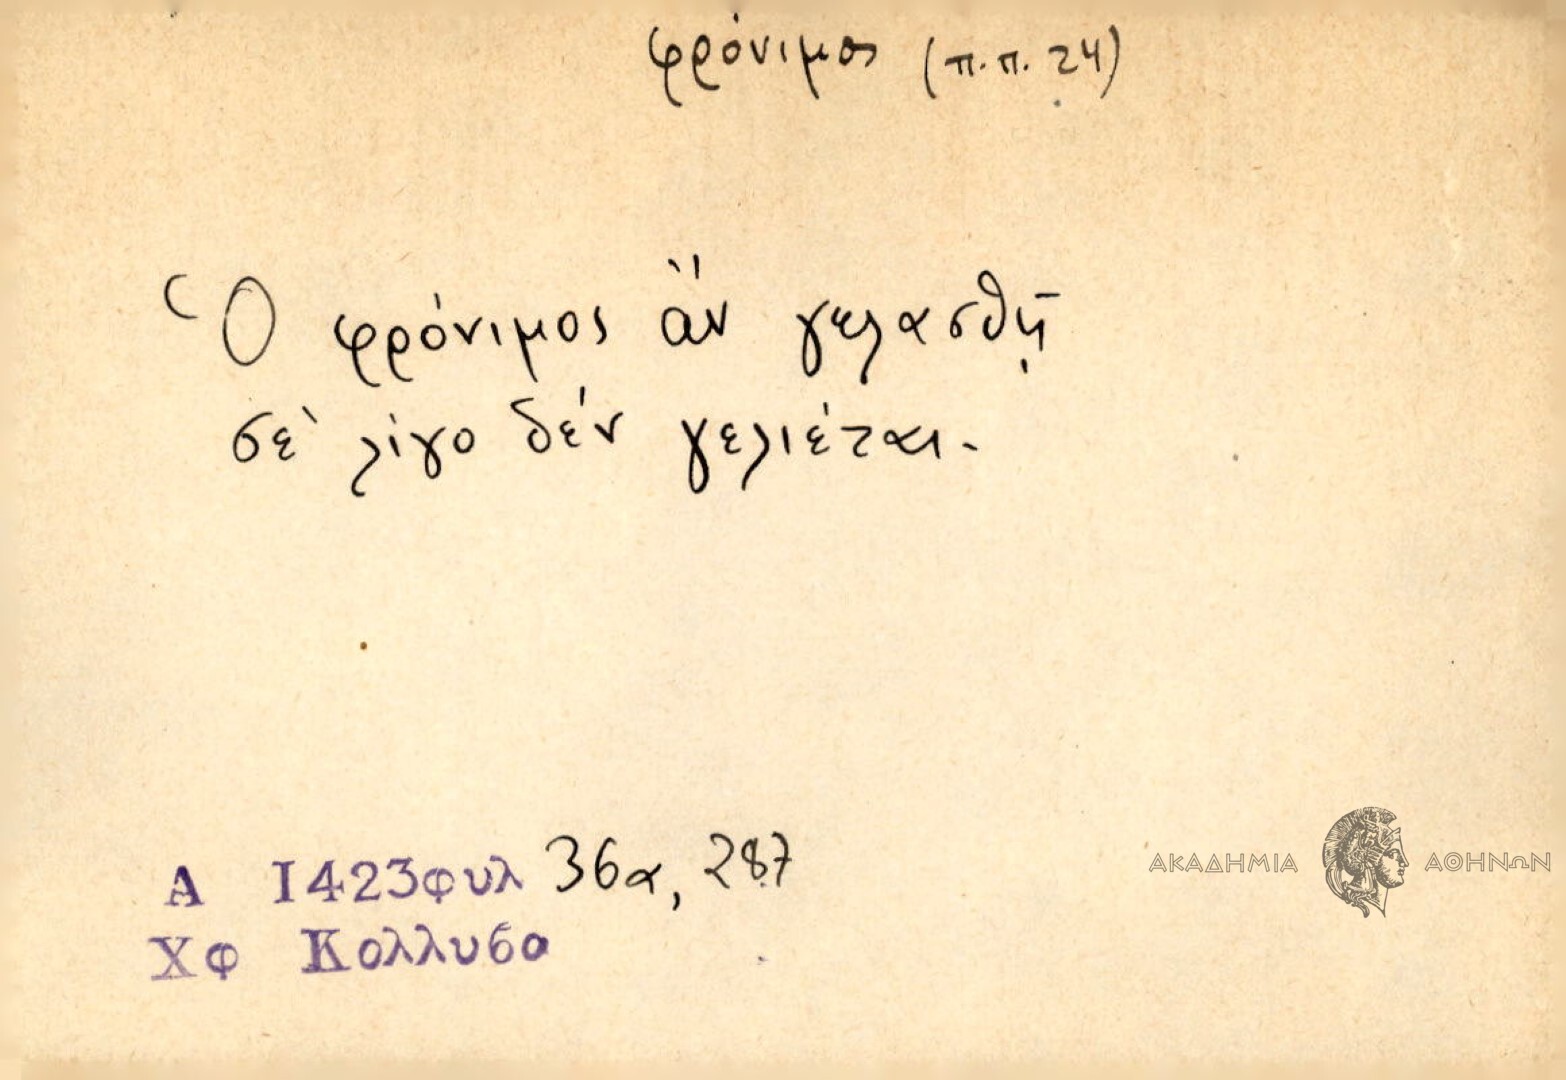 φρόνιμος (π.π. 24)
Ὁ φρόνιμος ἂν γελασθῇ
σὲ λίγο δέν γελιέται.
Α 1423 φυλ 36α, 287
Χφ Κολλυβα
ΑΚΑΔΗΜΙΑ ΑΘΗΝΩΝ